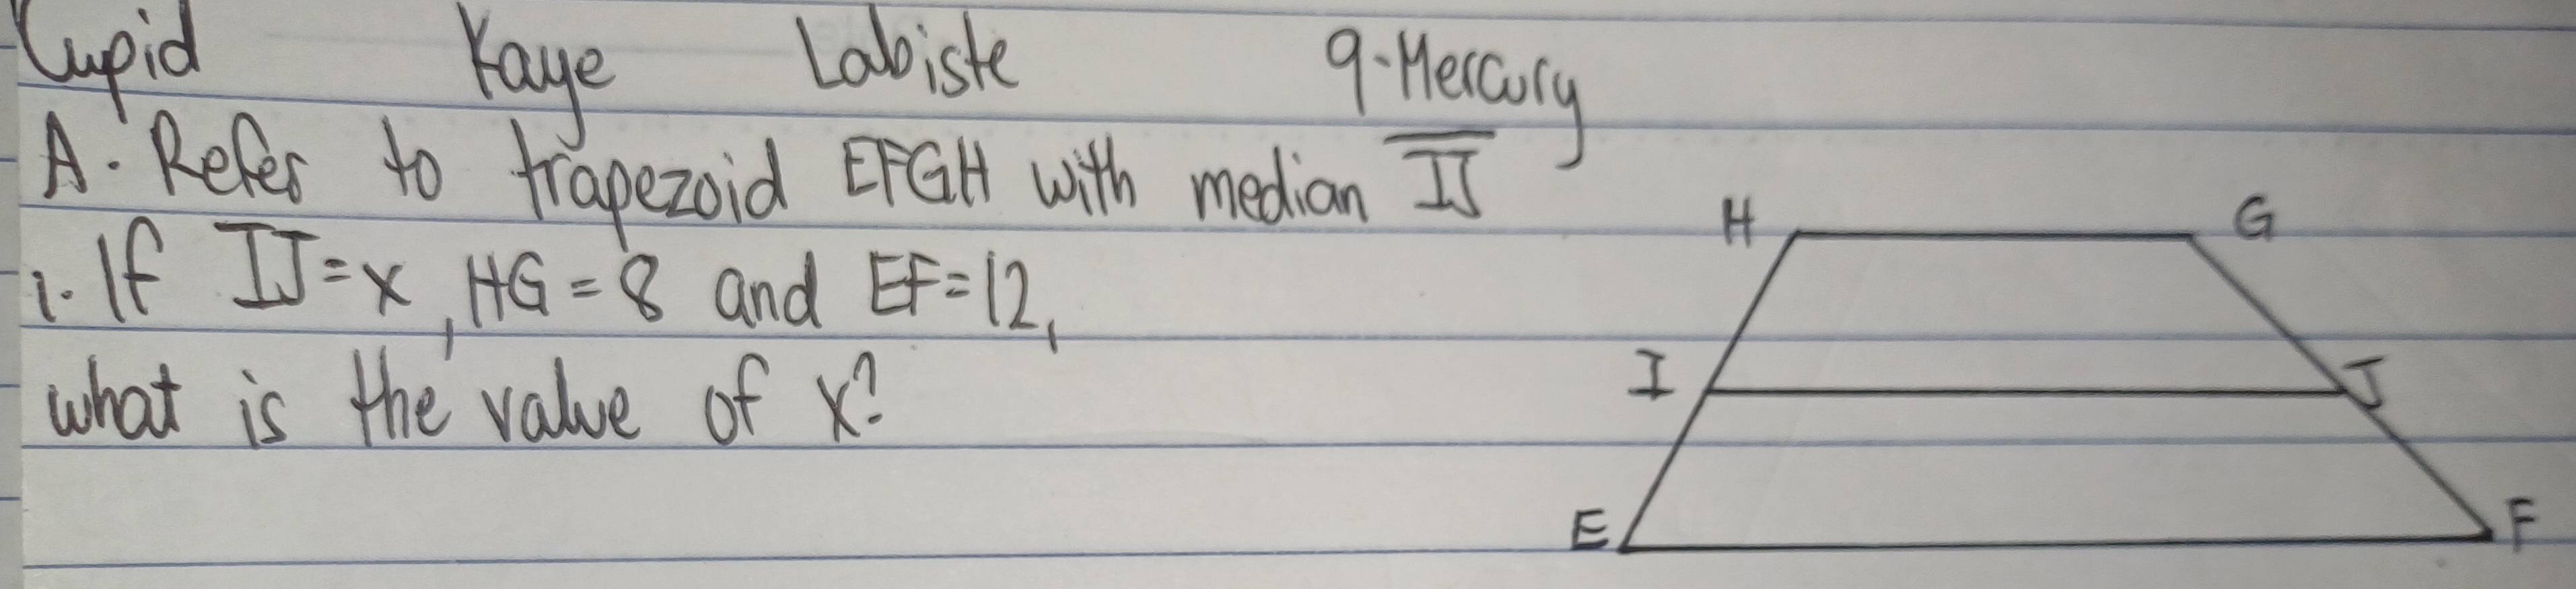 Cupid Kaye Labiste 9-Mercury
A. Refer to trapezoid EFGH with median IJ
1. If IJ=x, HG=8 and EF=12,
what is the value of x?
H G
I J
E F